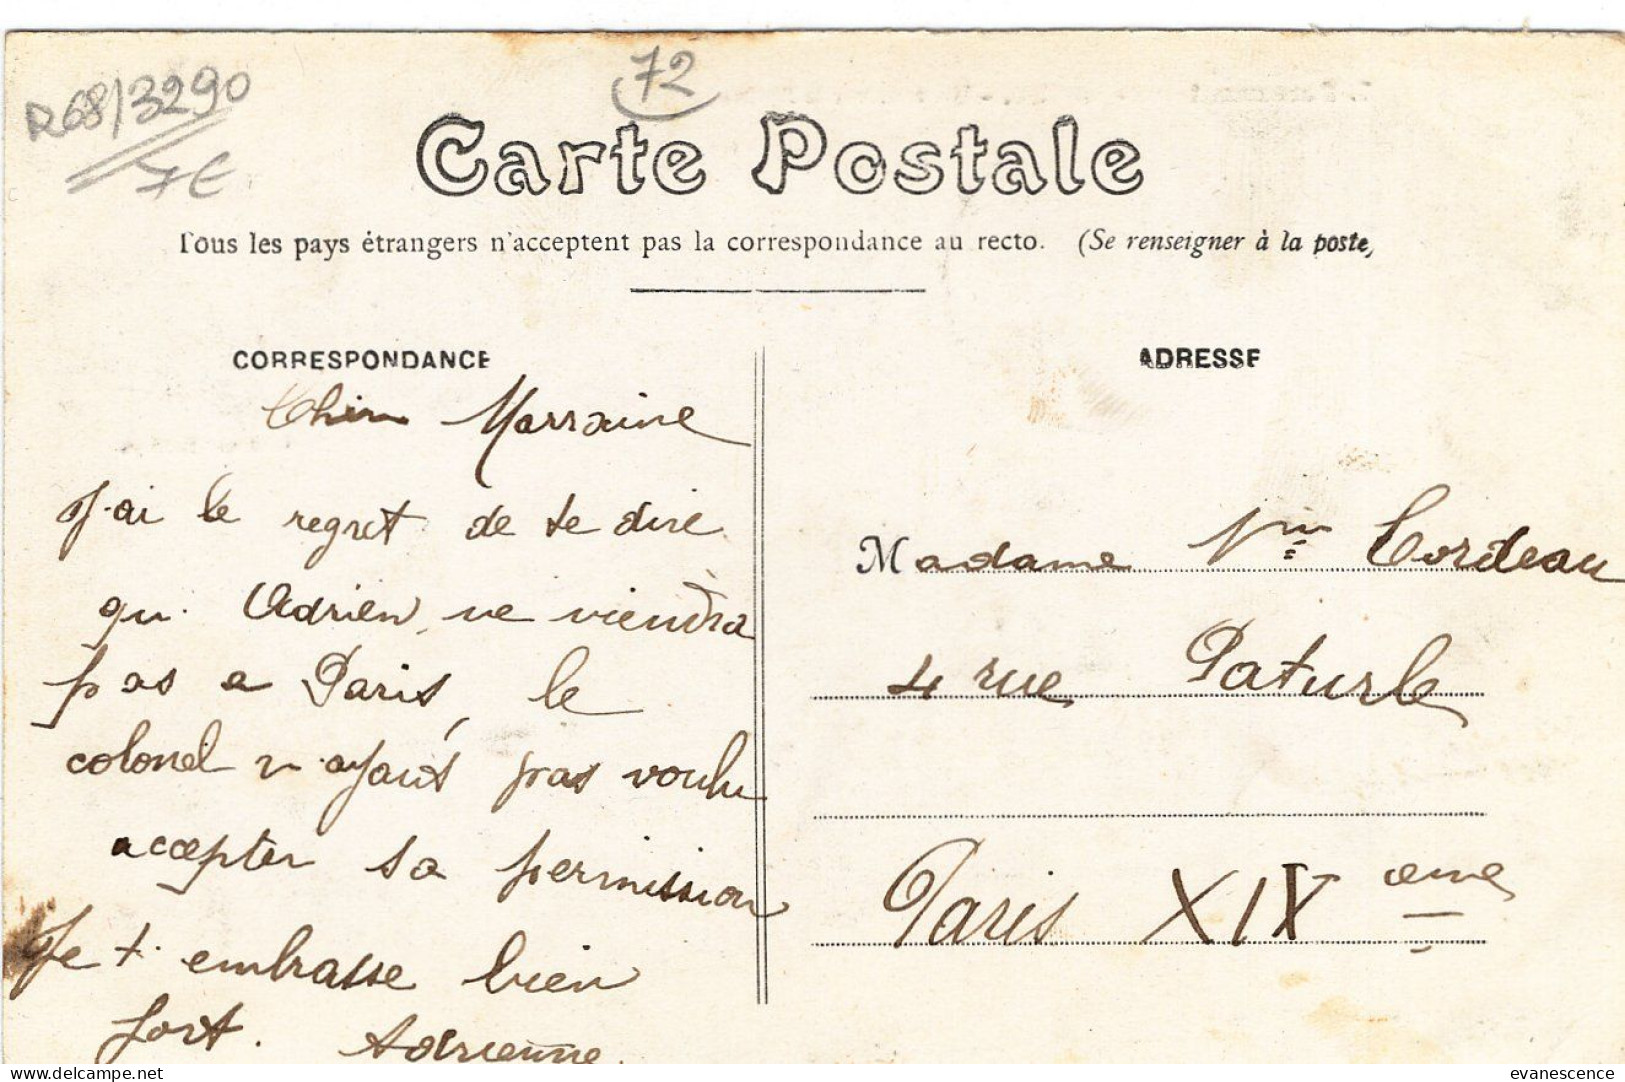 R68/3290
7€
72
Carte Postale
Tous les pays étrangers n'acceptent pas la correspondance au recto. (Se renseigner à la poste)
CORRESPONDANCE
Chère Marraine
J'ai le regret de te dire
qu' Adrien, ne viendra
pas a Paris, le
colonel n'ayant pas voulu
accepter sa permission
Je t' embrasse bien
fort. Adrienne.
ADRESSE
Madame Vve Cordeau
4 rue Paturle
Paris XIX eme
delcampe.net
evanescence